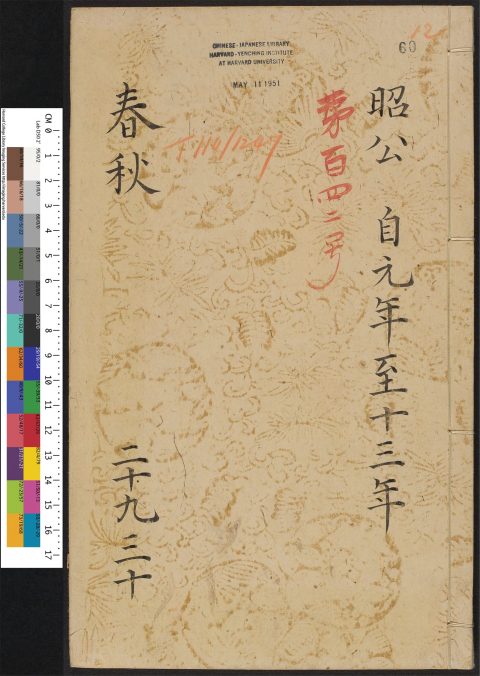 12
60
昭公 自元年至十三年
第百四二号
CHINESE-JAPANESE LIBRARY
HARVARD-YENCHING INSTITUTE
AT HARVARD UNIVERSITY
MAY 11 1951
T 110/1247
春秋 二十九 三十
CM 0 1 2 3 4 5 6 7 8 9 10 11 12 13 14 15 16 17